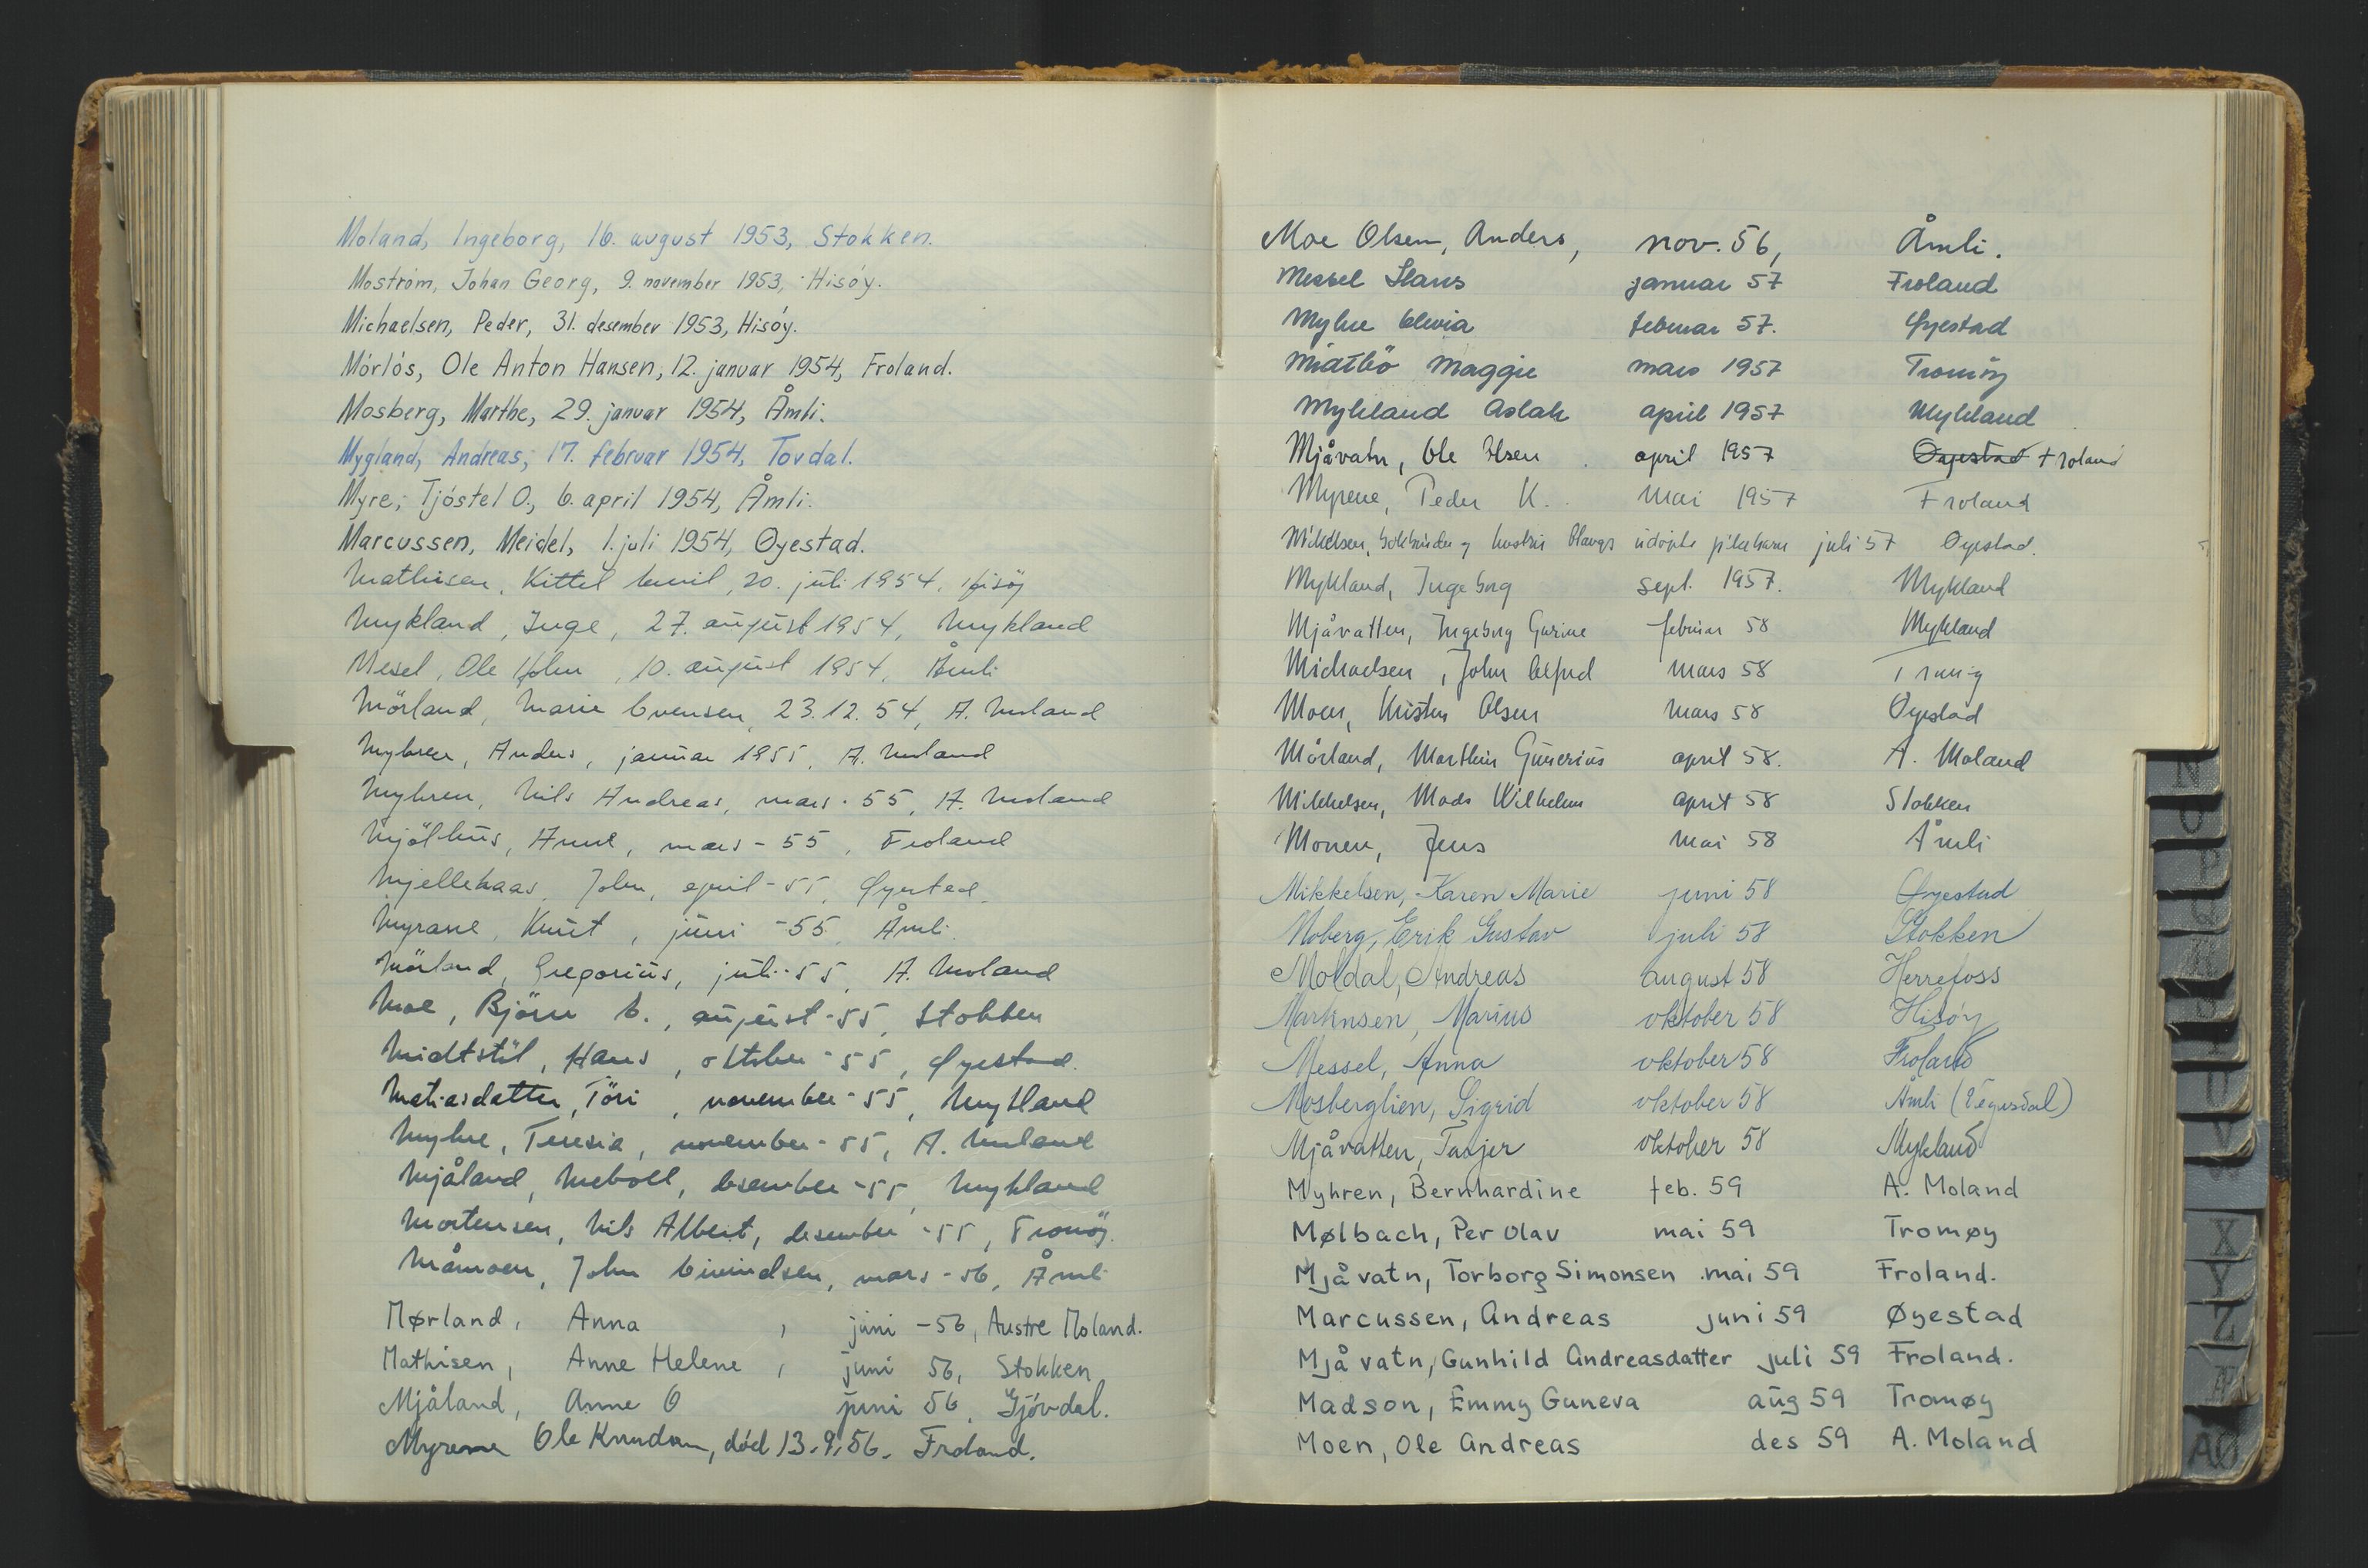 Moland, Ingeborg, 16. august 1953, Stokken.
Moström, Johan Georg, 9. november 1953, Hisóy.
Michaelsen, Peder, 31. desember 1953, Hisóy.
Mórlós, Ole Anton Hansen, 12. januar 1954, Froland.
Mosberg, Marthe, 29. januar 1954, Åmli.
Mygland, Andreas, 17. februar 1954, Tovdal.
Myre, Tjóstel O., 6. april 1954, Åmli.
Marcussen, Meidel, 1. juli 1954, Oyestad.
Mathisen, Kittel Emil, 20. juli 1954, Hisöy
Mykland, Inge, 27. august 1954, Mykland
Mesel, Ole John, 10. august 1954, Åmli
Mörland, Marie Evensen, 23.12.54, A. Moland
Myhren, Anders, januar 1955, A. Moland
Myhren, Nils Andreas, mars - 55, A. Moland
Mjölhus, Anne, mars - 55, Froland
Mjellekaas, John, april - 55, Øyestad
Myrane, Knut, juni - 55, Åmli
Mörland, Gregorius, juli - 55, A. Moland
Moe, Björn E., august - 55, Stokken
Midtstøl, Hans, oktober - 55, Øyestad.
Matiasdatter, Töri, november - 55, Mykland
Myhre, Teresia, november - 55, A. Moland
Mjåland, desember - 55, Mykland
Mortensen, Nils Albert, desember - 55, Tromöy.
Måmoen, John Eivindsen, mars - 56, Åmli
Mørland, Anna, juni - 56, Austre Moland.
Mathisen, Anne Helene, juni 56, Stokken
Mjåland, Anne O juni 56, Gjóvdal.
Myrene Ole Knudsen, dód 13.9.56. Froland.
Moe Olsen, Anders, nov. 56, Åmli.
Messel Hans januar 57 Froland
Myhre Elevia februar 57. Øyestad
Miatbö Maggie mars 1957 Tromöy
Mykland Aslak april 1957 Mykland
Mjåvatn, Ole Olsen april 1957 Oyestad Froland
Myrene, Peder K. mai 1957 Froland
Mikkelsen, bokbinder og hustru Olaugs udöpte pikebarn juli 57 Oyestad.
Mykland, Ingeborg sept. 1957. Mykland
Mjåvatten, Ingeborg Gurine februar 58 Mykland
Michaelsen, John Alfred mars 58 Tromöy
Moen, Kristen Olsen mars 58 Oyestad
Mörland, Marthin Gunerius april 58. A. Moland
Mikkelsen, Mads Wilhelm april 58 Stokken
Monen, Jens mai 58 Åmli
Mikkelsen, Karen Marie juni 58 Øyestad
Moberg, Erik Gustav juli 58 Stokken
Moldal, Andreas august 58 Herrefoss
Martinsen, Marius oktober 58 Hisóy
Messel, Anna oktober 58 Froland
Mosberglien, Sigrid oktober 58 Åmli (Vegusdal)
Mjåvatten, Tarjer oktober 58 Mykland
Myhren, Bernhardine feb. 59 A. Moland
Mølbach, Per Olav mai 59 Tromøy
Mjåvatn, Torborg Simonsen mai 59 Froland.
Marcussen, Andreas juni 59 Øyestad
Mjåvatn, Gunhild Andreasdatter juli 59 Froland.
Madson, Emmy Guneva aug 59 Tromøy
Moen, Ole Andreas des 59 A. Moland
N
O
P
Q
R
S
T
U
V
X
Y
Z
Æ
AØ